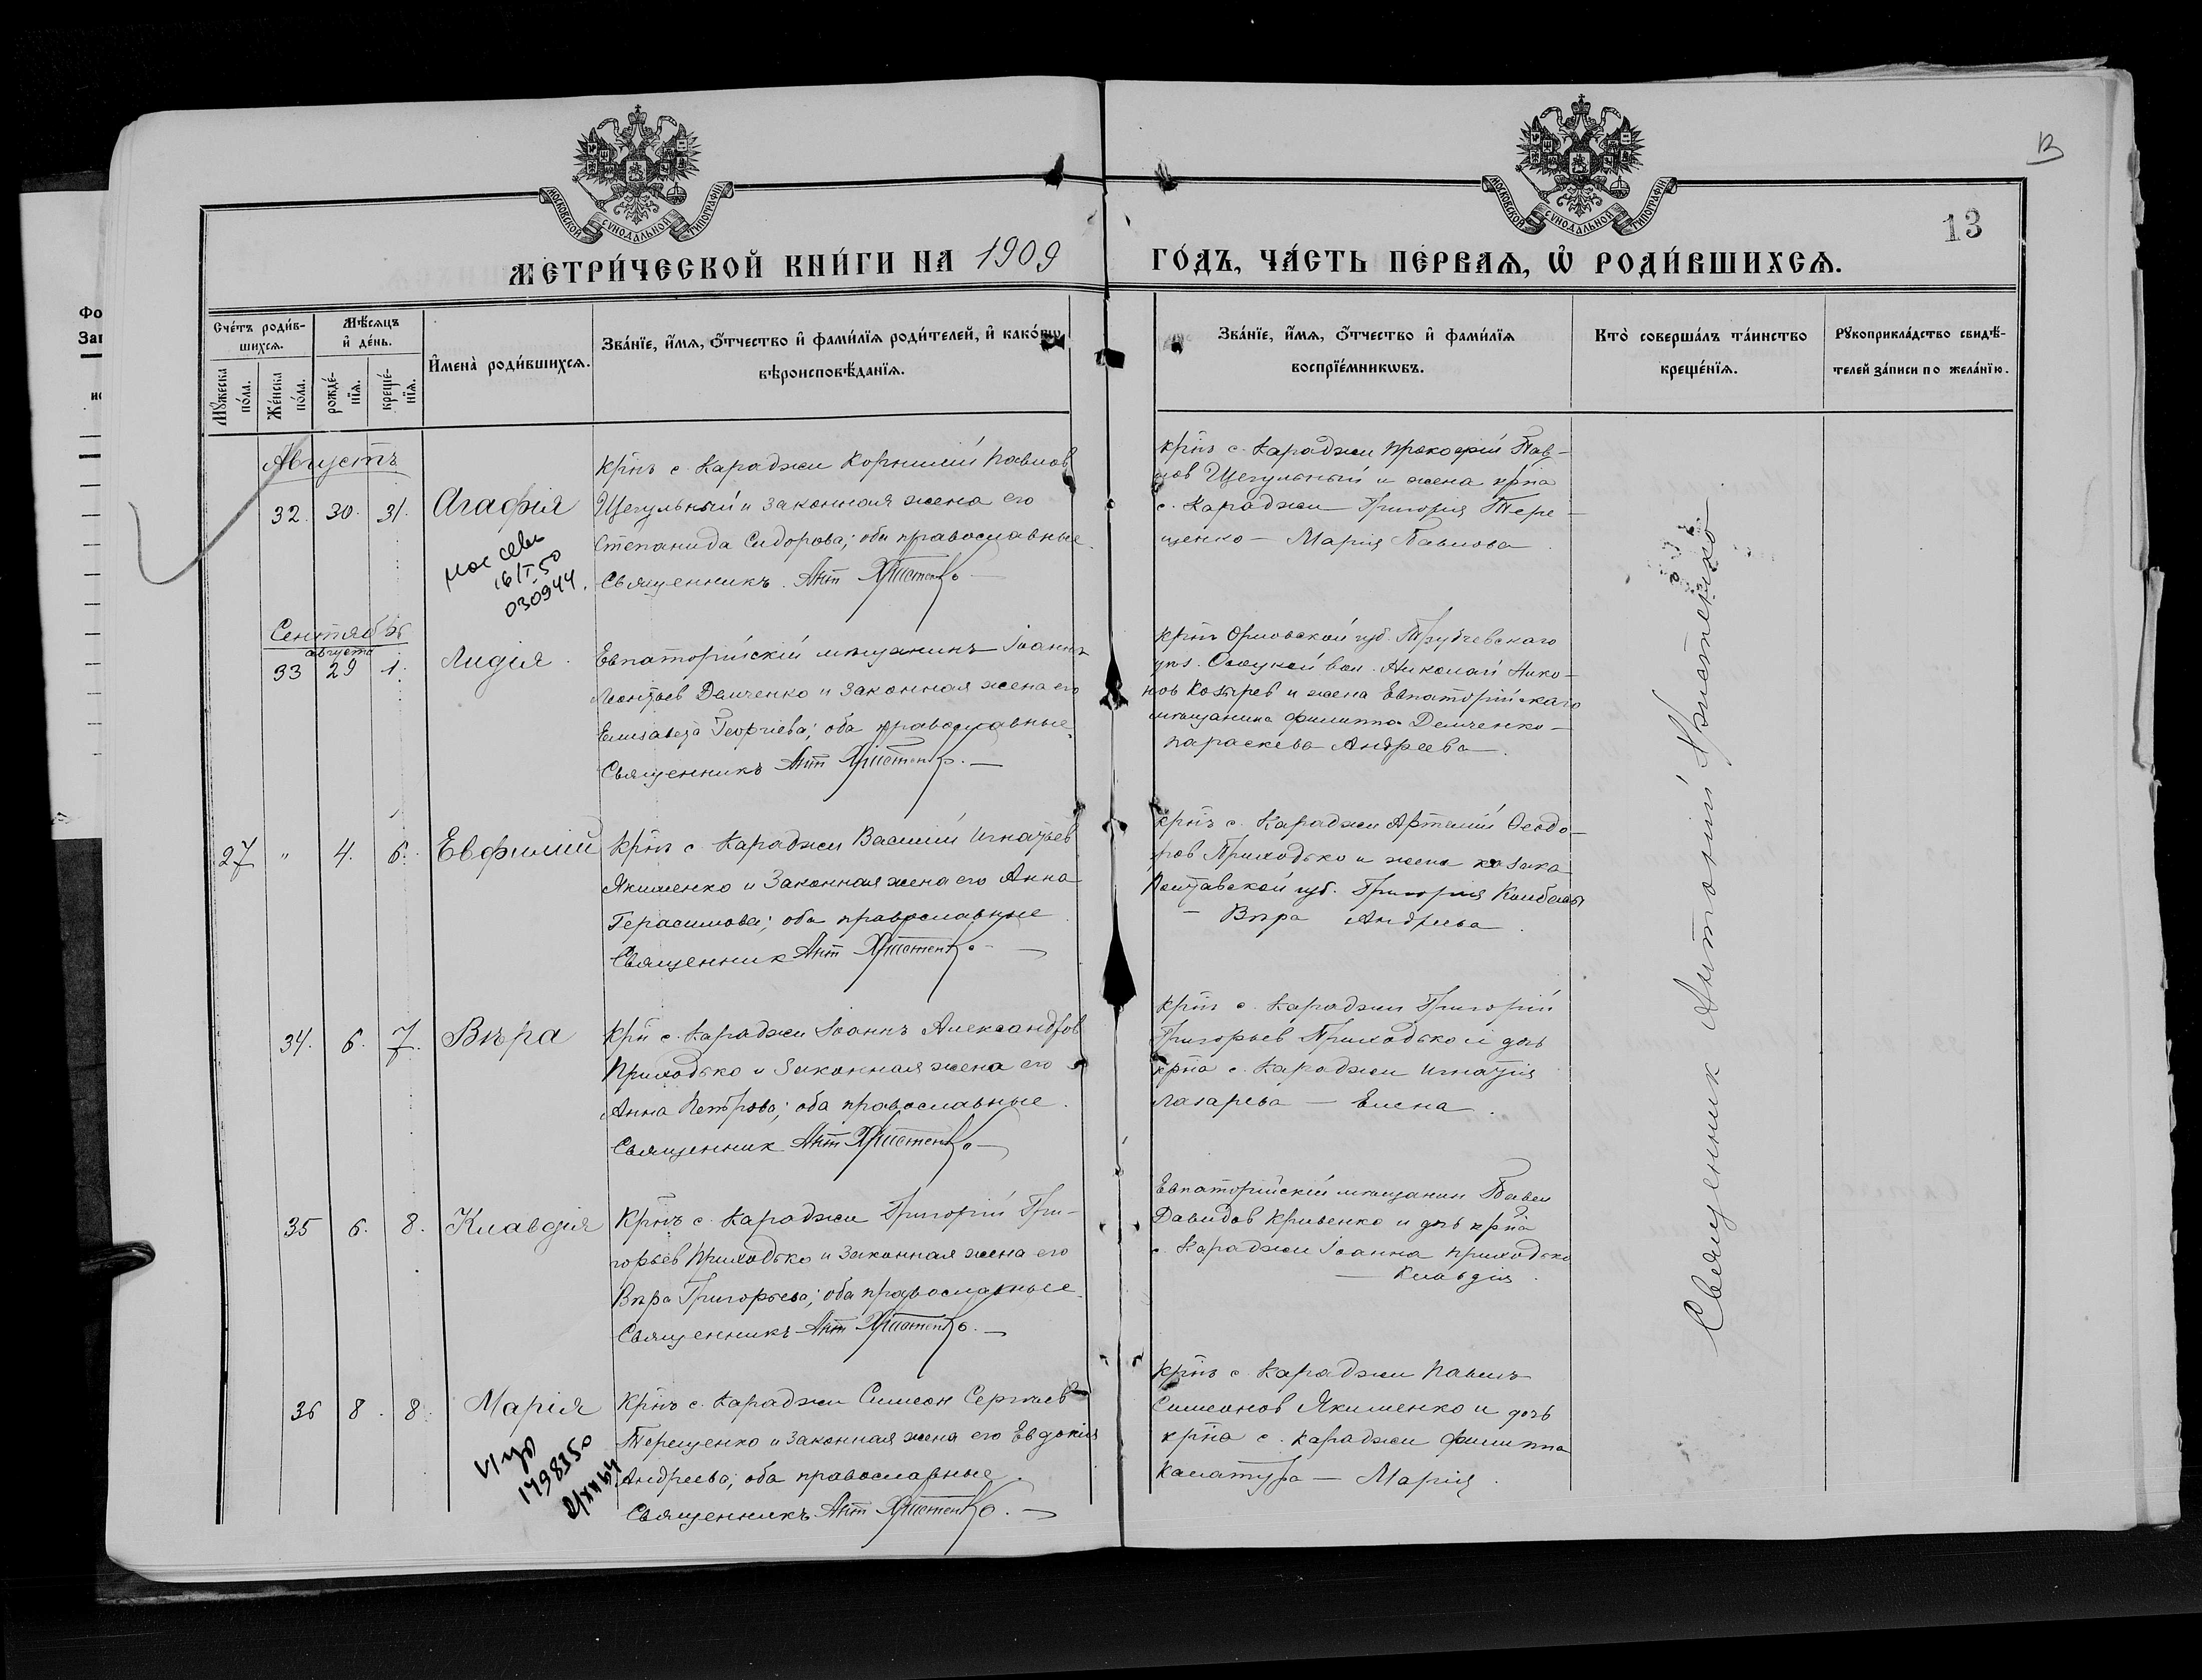 МОСКОВСКОЙ СУНОДАЛЬНОЙ ТИПОГРАФІИ
МОСКОВСКОЙ СУНОДАЛЬНОЙ ТИПОГРАФІИ
13
13
МЕТРИ́ЧЕСКОЙ КНИ́ГИ НА 1909
ГО́ДЪ, ЧА́СТЬ ПЕ́РВАѦ, Ѡ РОДИ́ВШИХСѦ.
Сче́тъ роди́в-
шихсѧ.
Мѣ́сѧцъ
и҆ де́нь.
Мꙋ́жеска
по́ла.
Же́нска
по́ла.
рожде́-
нїѧ.
креще́-
нїѧ.
И҆мена̀ роди́вшихсѧ.
Зва́нїе, и҆́мѧ, ѻ҆́тчество и҆ фами́лїѧ роди́телей, и҆ како́гѡ
вѣроисповѣ́данїѧ.
Зва́нїе, и҆́мѧ, ѻ҆́тчество и҆ фами́лїѧ
воспрїе́мникѡвъ.
Кто̀ соверша́лъ та́инство
креще́нїѧ.
Рꙋкоприкла́дство свидѣ́-
телей за́писи по жела́нїю.
Августъ
32. 30. 31. Агафія
Крнъ с. Караджи Корнилій Павлов
Щегульный и законная жена его
Степанида Сидорова; оба православные.
Священникъ Ант Христенко
16/I-50
030944.
крнъ с. Караджи Прокофій Пав-
лов Щегульный и жена крна
с. Караджи Григорія Тере-
щенко – Марія Павлова
Сентябрь
августа
33 29 1. Лидія.
Евпаторійскій мѣщанинъ Іоаннъ
Леонтьев Демченко и законная жена его
Елисавета Георгіева; оба православные.
Священникъ Ант Христенко. –
крнъ Орловской губ. Трубчевскаго
вол. Николай Нико-
нов Козырев и жена Евпаторійскаго
мѣщанина Филиппа Демченко –
Параскева Андреева.
27 " 4. 6. Евфимій
Крнъ с. Караджи Василій Игнатьев
Якименко и законная жена его Анна
Герасимова; оба православные
Священник Ант Христенко –
крнъ с. Караджи Артемій Ѳеодо-
ров Приходько и жена козака
Полтавской губ. Григорія
– Вѣра Андреева.
34. 6. 7. Вѣра
Крн с. Караджи Іоаннъ Александров
Приходько и законная жена его
Анна Петрова; оба православные.
Священник Ант Христенко –
крнъ с. Караджи Григорій
Григорьев Приходько и дочь
крна с. Караджи Игнатія
Лазарева – Елена.
35 6. 8. Клавдія
Крнъ с. Караджи Григорій Гри-
горьев Приходько и законная жена его
Вѣра Григорьева; оба православные.
Священникъ Ант Христенко. –
Евпаторійскій мѣщанин Павел
Давидов Кривенко и дочь крна
с. Караджи Іоанна Приходько
– Клавдія.
36 8. 8. Марія
Крнъ с. Караджи Симеон Сергіев
Терещенко и законная жена его Евдокия
Андреева; оба православные.
Священникъ Ант Христенко. –
1798350
крнъ с. Караджи Павелъ
Симеонов Якименко и дочь
крна с. Караджи Филиппа
Калатура – Марія.
Священник Антоній Христенко